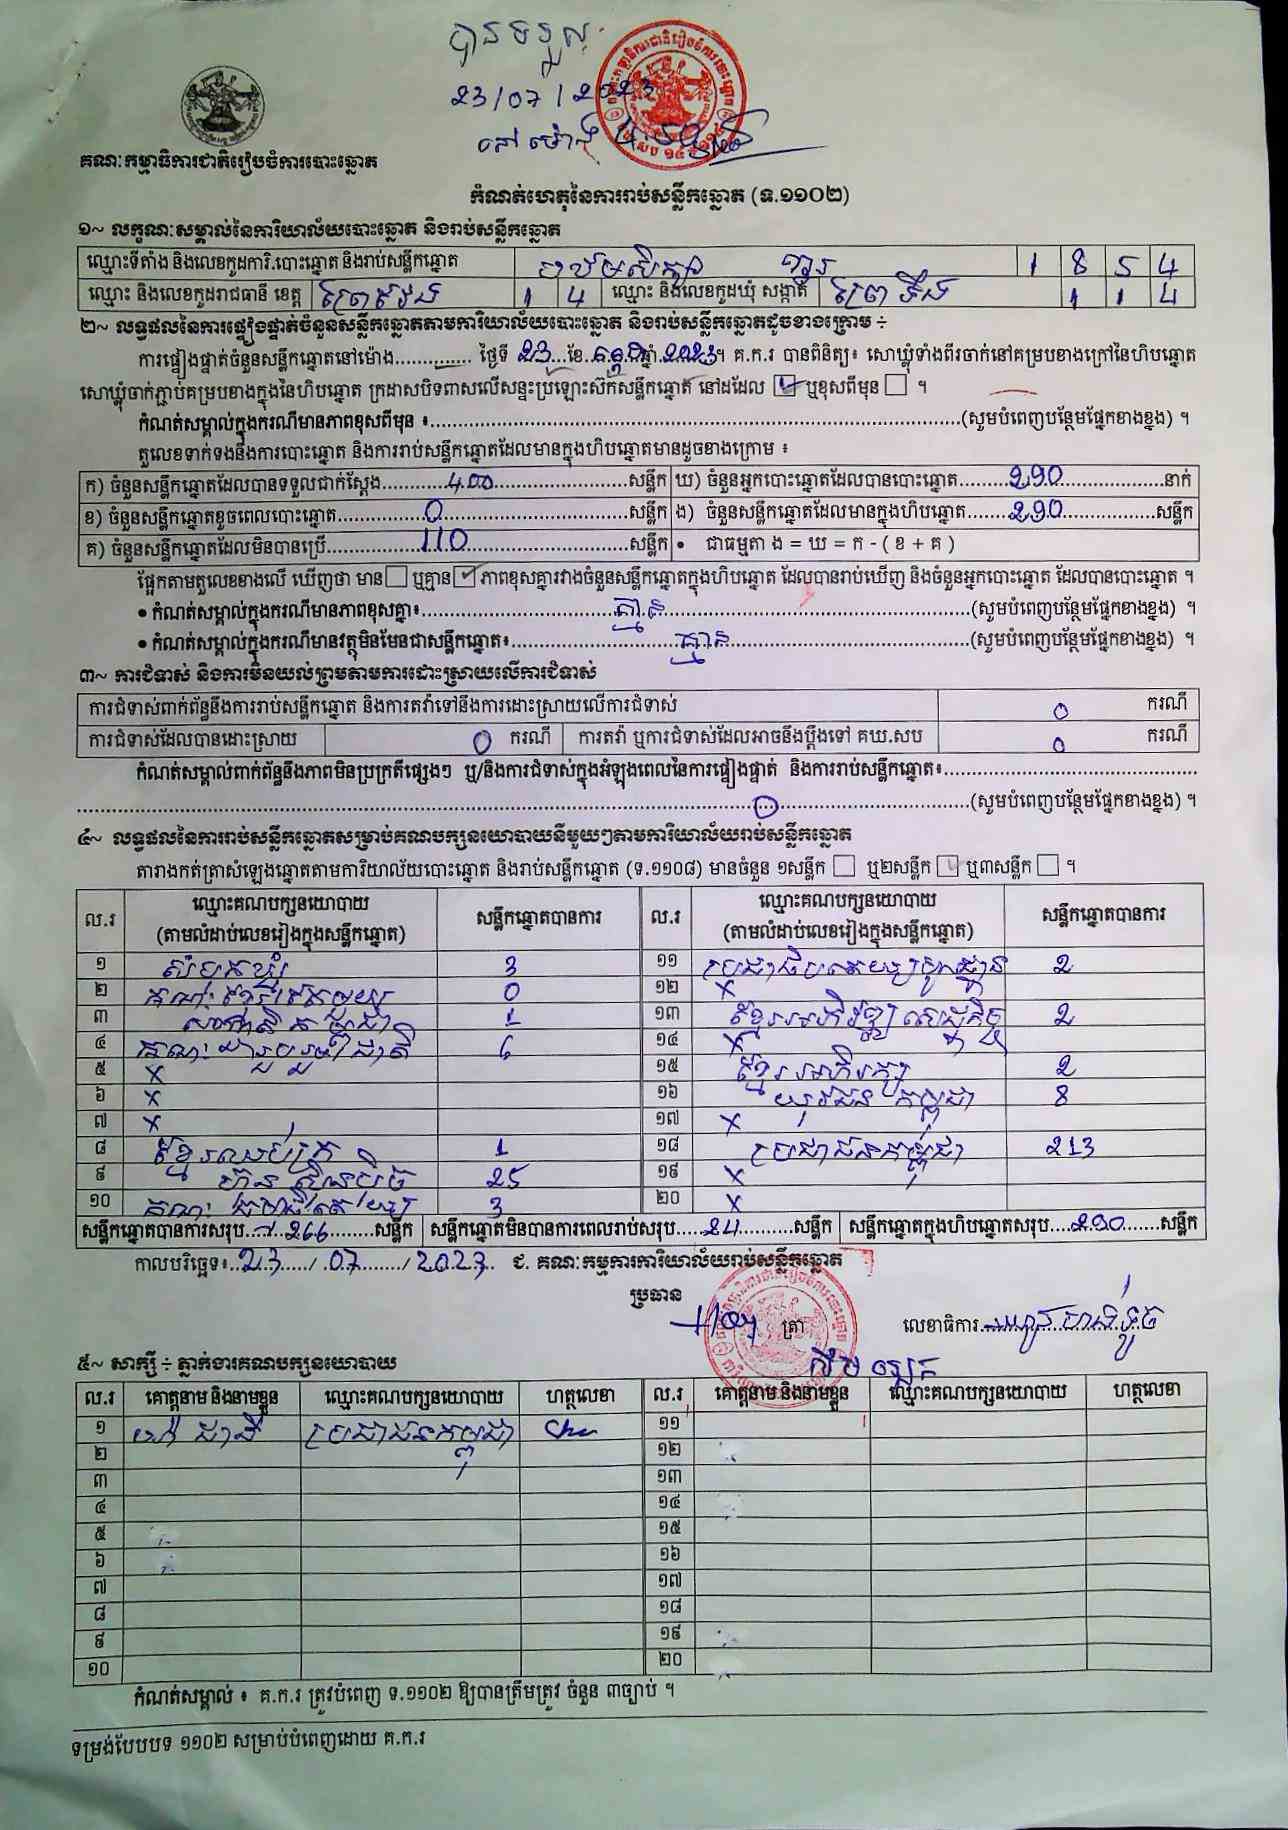 បានទទួល
23/07/2023
នៅម៉ោង
គណៈកម្មាធិការជាតិរៀបចំការបោះឆ្នោត
កំណត់ហេតុនៃការរាប់សន្លឹកឆ្នោត (ទ.១១០២)
១~ លក្ខណៈសម្គាល់នៃការិយាល័យបោះឆ្នោត និងរាប់សន្លឹកឆ្នោត
ឈ្មោះទីតាំង និងលេខកូដការិ.បោះឆ្នោត និងរាប់សន្លឹកឆ្នោត បឋមសិក្សា 1 8 5 4
ឈ្មោះ និងលេខកូដរាជធានី ខេត្ត ព្រៃវែង 1 4 ឈ្មោះ និងលេខកូដឃុំ សង្កាត់ ព្រៃទឹង 1 1 4
២~ លទ្ធផលនៃការផ្ទៀងផ្ទាត់ចំនួនសន្លឹកឆ្នោតតាមការិយាល័យបោះឆ្នោត និងរាប់សន្លឹកឆ្នោតដូចខាងក្រោម ÷
ការផ្ទៀងផ្ទាត់ចំនួនសន្លឹកឆ្នោតនៅម៉ោង............. ថ្ងៃទី 23 ខែ កក្កដា ឆ្នាំ 2023។ គ.ក.រ បានពិនិត្យ៖ សោឃ្លុំទាំងពីរចាក់នៅគម្របខាងក្រៅនៃហិបឆ្នោត
សោឃ្លុំចាក់ភ្ជាប់គម្របខាងក្នុងនៃហិបឆ្នោត ក្រដាសបិទពាសលើសន្ទះប្រឡោះស៊កសន្លឹកឆ្នោត នៅដដែល ☑ ឬខុសពីមុន ☐ ។
កំណត់សម្គាល់ក្នុងករណីមានភាពខុសពីមុន ៖..........(សូមបំពេញបន្ថែមផ្នែកខាងខ្នង) ។
តួលេខទាក់ទងនឹងការបោះឆ្នោត និងការរាប់សន្លឹកឆ្នោតដែលមានក្នុងហិបឆ្នោតមានដូចខាងក្រោម ៖
ក) ចំនួនសន្លឹកឆ្នោតដែលបានទទួលជាក់ស្តែង..........400..........សន្លឹក ឃ) ចំនួនអ្នកបោះឆ្នោតដែលបានបោះឆ្នោត..........290..........នាក់
ខ) ចំនួនសន្លឹកឆ្នោតខូចពេលបោះឆ្នោត..........0..........សន្លឹក ង) ចំនួនសន្លឹកឆ្នោតដែលមានក្នុងហិបឆ្នោត..........290..........សន្លឹក
គ) ចំនួនសន្លឹកឆ្នោតដែលមិនបានប្រើ..........110..........សន្លឹក • ជាធម្មតា ង = ឃ = ក - ( ខ + គ )
ផ្អែកតាមតួលេខខាងលើ ឃើញថា មាន ☐ ឬគ្មាន ☑ ភាពខុសគ្នារវាងចំនួនសន្លឹកឆ្នោតក្នុងហិបឆ្នោត ដែលបានរាប់ឃើញ និងចំនួនអ្នកបោះឆ្នោត ដែលបានបោះឆ្នោត ។
• កំណត់សម្គាល់ក្នុងករណីមានភាពខុសគ្នា៖..........គ្មាន..........(សូមបំពេញបន្ថែមផ្នែកខាងខ្នង) ។
• កំណត់សម្គាល់ក្នុងករណីមានវត្ថុមិនមែនជាសន្លឹកឆ្នោត៖..........គ្មាន..........(សូមបំពេញបន្ថែមផ្នែកខាងខ្នង) ។
៣~ ការជំទាស់ និងការមិនយល់ព្រមតាមការដោះស្រាយលើការជំទាស់
ការជំទាស់ពាក់ព័ន្ធនឹងការរាប់សន្លឹកឆ្នោត និងការតវ៉ាទៅនឹងការដោះស្រាយលើការជំទាស់ 0 ករណី
ការជំទាស់ដែលបានដោះស្រាយ 0 ករណី ការតវ៉ា ឬការជំទាស់ដែលអាចនឹងប្តឹងទៅ គឃ.សប 0 ករណី
កំណត់សម្គាល់ពាក់ព័ន្ធនឹងភាពមិនប្រក្រតីផ្សេងៗ ឬ/និងការជំទាស់ក្នុងអំឡុងពេលនៃការផ្ទៀងផ្ទាត់ និងការរាប់សន្លឹកឆ្នោត៖..........
..........0..........(សូមបំពេញបន្ថែមផ្នែកខាងខ្នង) ។
៤~ លទ្ធផលនៃការរាប់សន្លឹកឆ្នោតសម្រាប់គណបក្សនយោបាយនីមួយៗតាមការិយាល័យរាប់សន្លឹកឆ្នោត
តារាងកត់ត្រាសំឡេងឆ្នោតតាមការិយាល័យបោះឆ្នោត និងរាប់សន្លឹកឆ្នោត (ទ.១១០៨) មានចំនួន ១សន្លឹក ☐ ឬ២សន្លឹក ☑ ឬ៣សន្លឹក ☐ ។
ល.រ ឈ្មោះគណបក្សនយោបាយ (តាមលំដាប់លេខរៀងក្នុងសន្លឹកឆ្នោត) សន្លឹកឆ្នោតបានការ ល.រ ឈ្មោះគណបក្សនយោបាយ (តាមលំដាប់លេខរៀងក្នុងសន្លឹកឆ្នោត) សន្លឹកឆ្នោតបានការ
១ សំបុកឃ្មុំ 3 ១១ ប្រជាធិបតេយ្យមូលដ្ឋាន 2
២ 0 ១២ x
៣ 1 ១៣ ខ្មែរអភិវឌ្ឍសេដ្ឋកិច្ច 2
៤ 6 ១៤ x
៥ x ១៥ ខ្មែរអភិរក្ស 2
៦ x ១៦ យុវជនកម្ពុជា 8
៧ x ១៧ x
៨ ខ្មែរឈប់ក្រ 1 ១៨ ប្រជាជនកម្ពុជា 213
៩ ហ៊្វុនស៊ិនប៉ិច 25 ១៩ x
១០ 3 ២០ x
សន្លឹកឆ្នោតបានការសរុប 266 សន្លឹក សន្លឹកឆ្នោតមិនបានការពេលរាប់សរុប 24 សន្លឹក សន្លឹកឆ្នោតក្នុងហិបឆ្នោតសរុប 290 សន្លឹក
កាលបរិច្ឆេទ៖ 23 / 07 / 2023 ជ. គណៈកម្មការការិយាល័យរាប់សន្លឹកឆ្នោត
ប្រធាន
ត្រា លេខាធិការ
៥~ សាក្សី ÷ ភ្នាក់ងារគណបក្សនយោបាយ
ល.រ គោត្តនាម និងនាមខ្លួន ឈ្មោះគណបក្សនយោបាយ ហត្ថលេខា ល.រ គោត្តនាម និងនាមខ្លួន ឈ្មោះគណបក្សនយោបាយ ហត្ថលេខា
១ ប្រជាជនកម្ពុជា ១១
២ ១២
៣ ១៣
៤ ១៤
៥ ១៥
៦ ១៦
៧ ១៧
៨ ១៨
៩ ១៩
១០ ២០
កំណត់សម្គាល់ ៖ គ.ក.រ ត្រូវបំពេញ ទ.១១០២ ឱ្យបានត្រឹមត្រូវ ចំនួន ៣ច្បាប់ ។
ទម្រង់បែបបទ ១១០២ សម្រាប់បំពេញដោយ គ.ក.រ